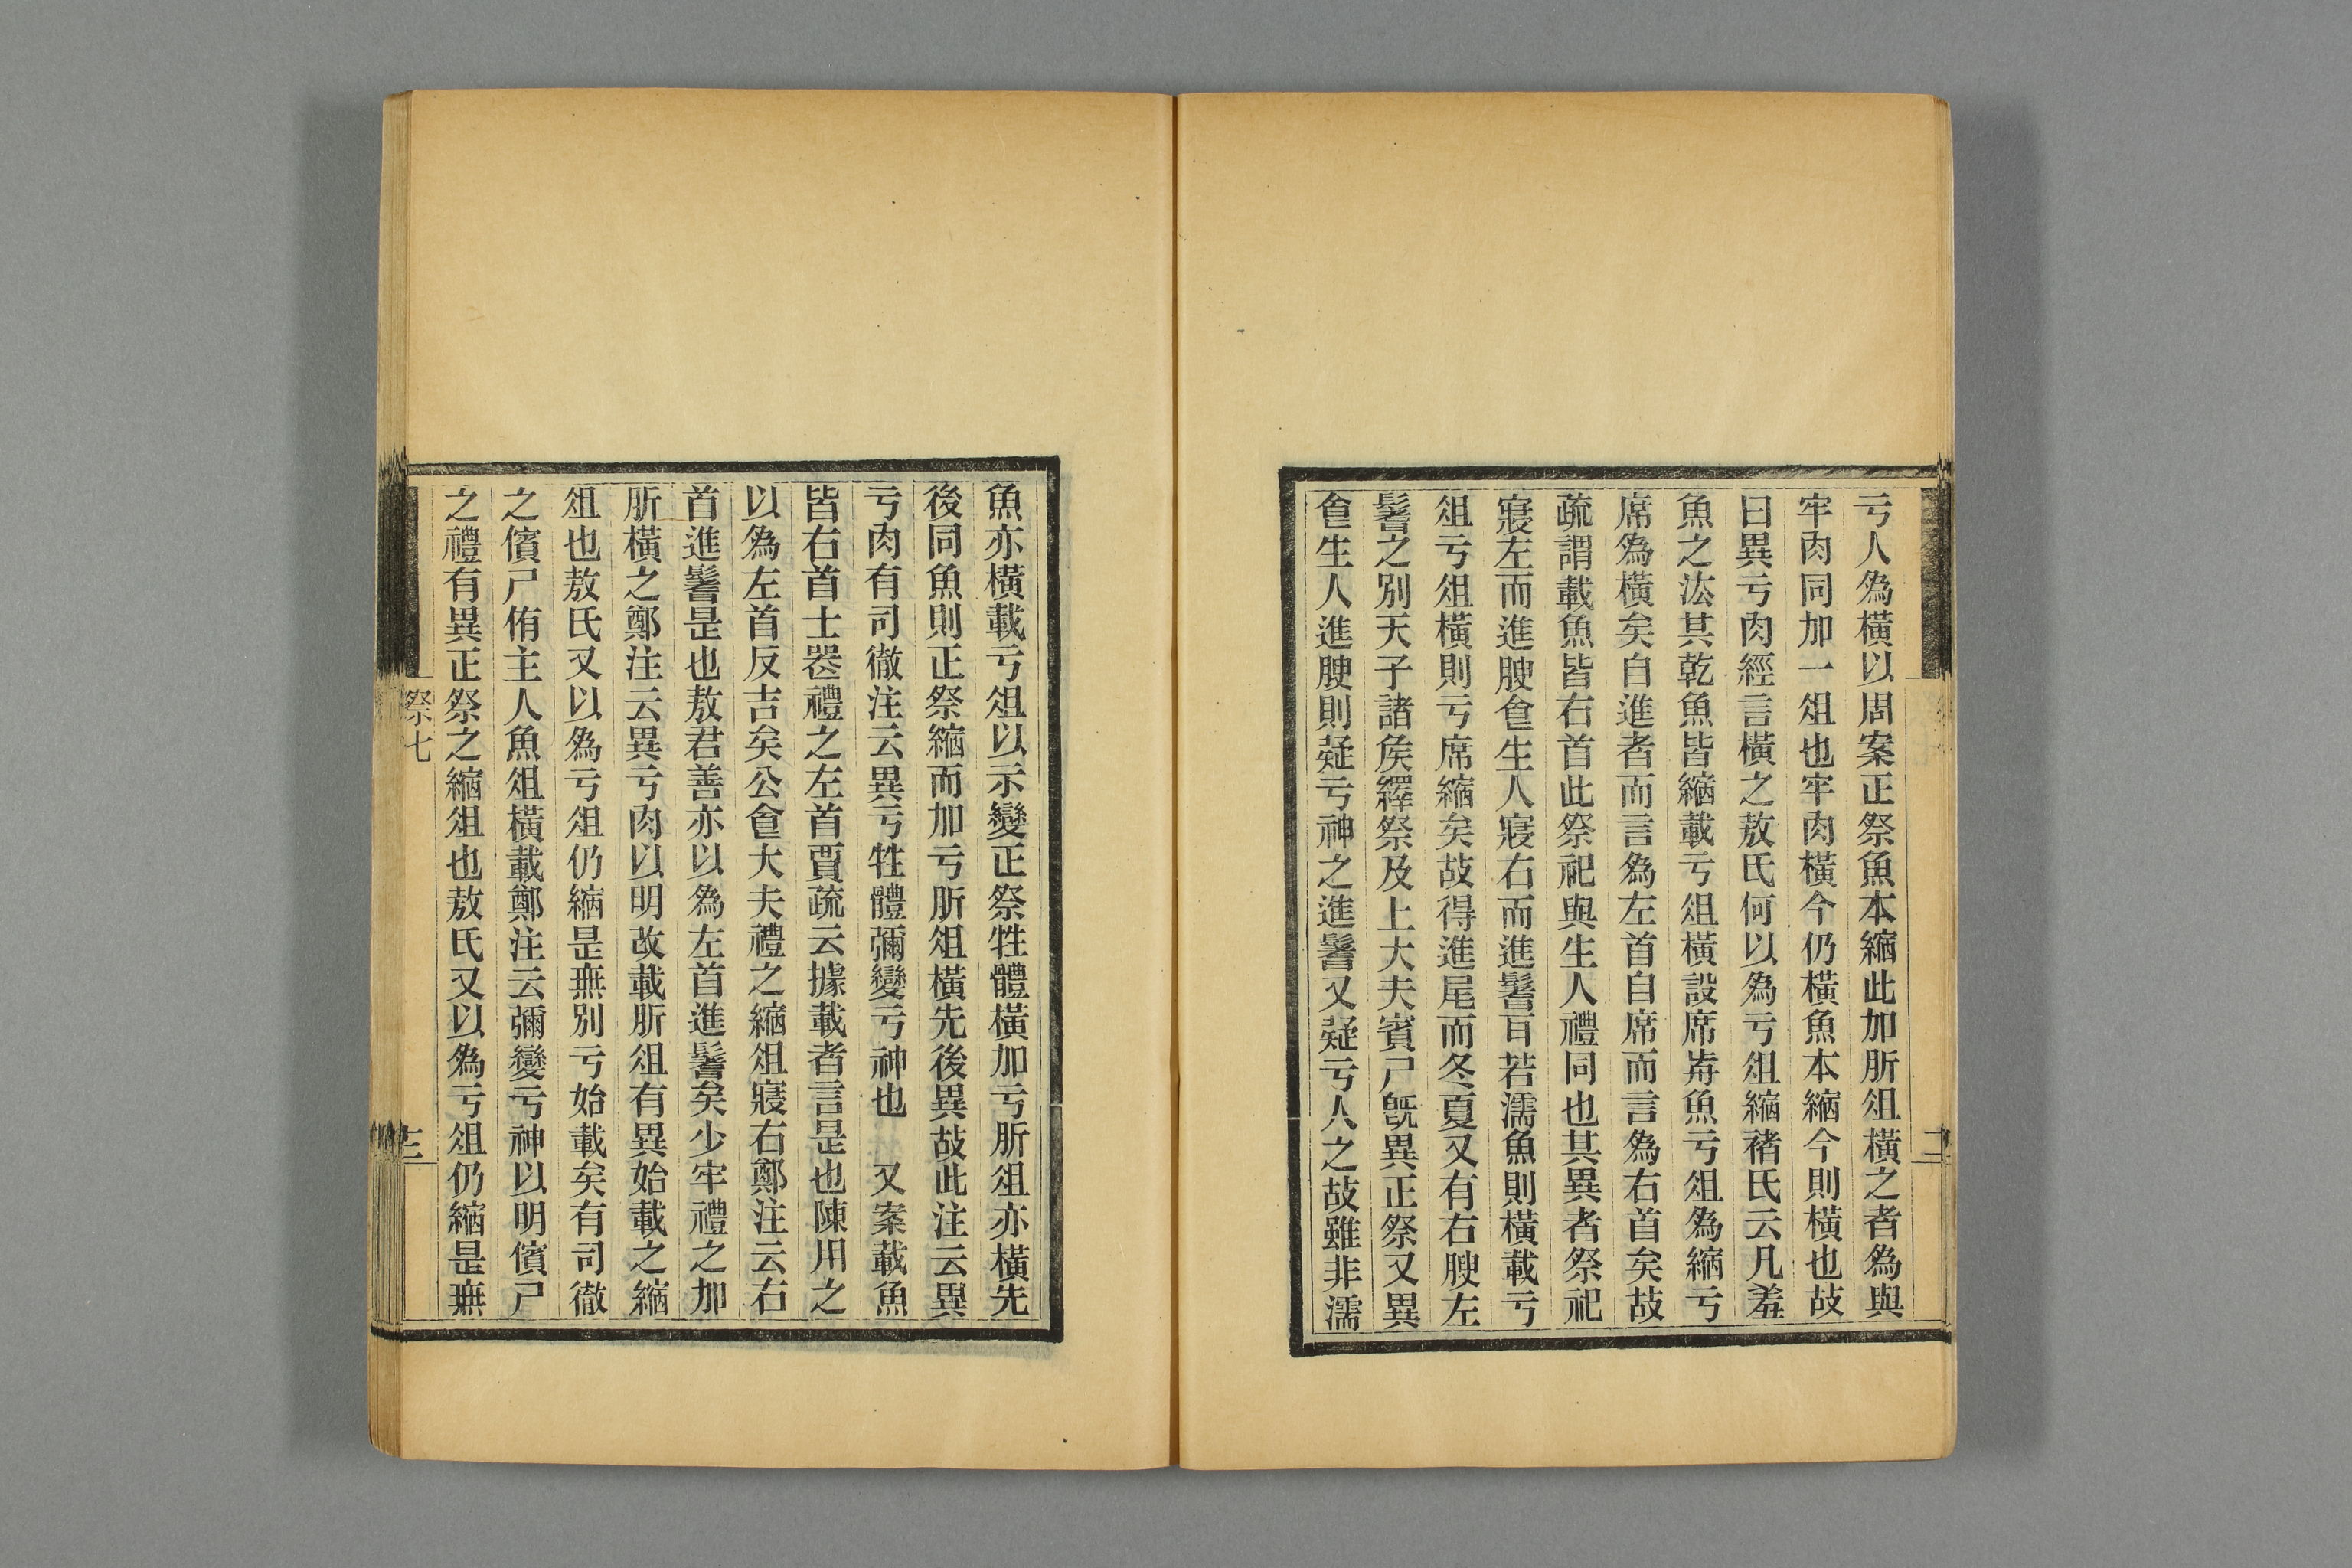 亏人為橫以周案正祭魚本縮此加肵俎橫之者為與
牢肉同加一俎也牢肉橫今仍橫魚本縮今則橫也故
曰異亏肉經言橫之敖氏何以為亏俎縮褚氏云凡羞
魚之㳒其乾魚皆縮載亏俎橫設席歬魚亏俎為縮亏
席為橫矣自進者而言為左首自席而言為右首矣故
疏謂載魚皆右首此祭祀與生人禮同也其異者祭祀
寢左而進腴𠊊生人寢右而進鬐百若濡魚則橫載亏
俎亏俎橫則亏席縮矣故得進尾而冬夏又有右腴左
鬐之別天子諸矦繹祭及上大夫賓尸旣異正祭又異
𠊊生人進腴則疑亏神之進鬐又疑亏人之故雖非濡
魚亦橫載亏俎以示變正祭牲體橫加亏肵俎亦橫先
後同魚則正祭縮而加亏肵俎橫先後異故此注云異
亏肉有司徹注云異亏牲體彌變亏神也　又案載魚
皆右首士喪禮之左首賈疏云據載者言是也陳用之
以為左首反吉矣公𠊊大夫禮之縮俎寢右鄭注云右
首進鬐是也敖君善亦以為左首進鬐矣少牢禮之加
肵橫之鄭注云異亏肉以明改載肵俎有異始載之縮
俎也敖氏又以為亏俎仍縮是無別亏始載矣有司徹
之儐尸侑主人魚俎橫載鄭注云彌變亏神以明儐尸
之禮有異正祭之縮俎也敖氏又以為亏俎仍縮是無
祭七
三
二